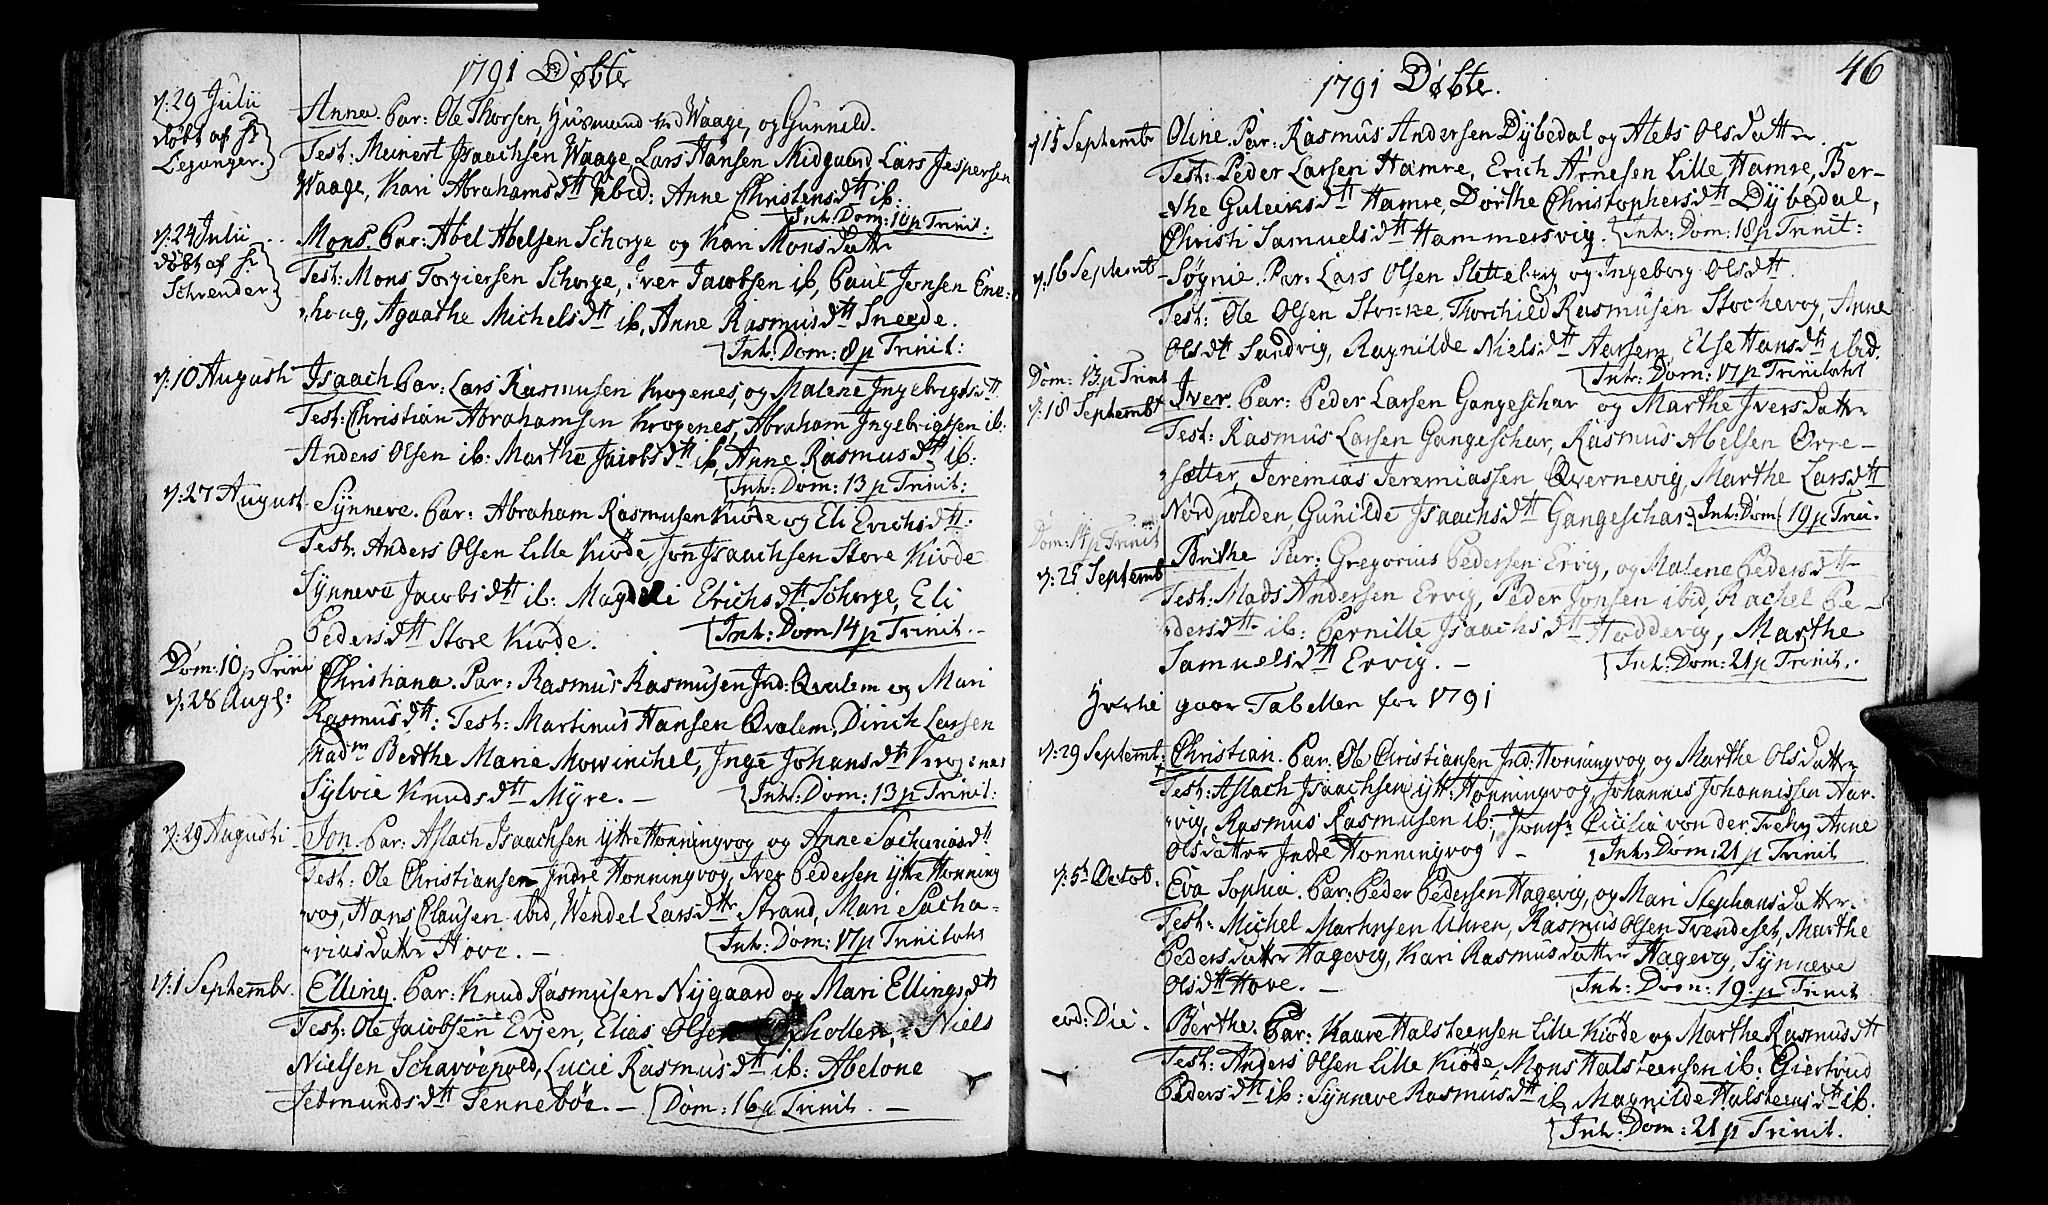 1791 Døbte
d: 29 Julii
døbt af Hr
Leganger.
Anna. Par: Ole Thorsen, Huusmand ved Waage, og Gunneld.
Test: Meinert Isaachsen Waage, Lars Hansen Midgaard, Lars Jespersen
Waage, Kari Abrahamsdtt ibid: Anne Christensdtt ib:
Int: Dom: 10 p Trinit:
d: 24 Julii
døbt af Hr
Schrender.
Mons. Par: Abel Abelsen Schorge og Kari Monsdattr
Test: Mons Torgiersen Schorge, Iver Jacobsen ib, Paul Jonsen Ene-
houg, Agaathe Michelsdtt ib, Anne Rasmusdtt Sneede.
Int: Dom: 8 p Trinit:
d: 10 Augusti
Isaach Par: Lars Rasmusen Krogenes, og Malene Ingebrigtsdtt
Test: Christian Abrahamsen Krogenes, Abraham Ingebrigtsen ib:
Anders Olsen ib: Marthe Jacobsdtt ib, Anne Rasmusdtt ib:
Int: Dom: 13 p Trinit:
d: 27 August
Synneve. Par: Abraham Rasmusen Kiøde og Eli Erichsdtt:
Test: Anders Olsen Lille Kiøde, Jon Isaachsen Store Kiøde
Synneva Jacobsdtt ib: Magdeli Erichsdtt Schorge, Eli
Pedersdtt Store Kiøde.
Int: Dom 14 p Trinit.
Dom: 10 p Trini
d: 28 Aug:
Christiana. Par: Rasmus Rasmusen Ind: Qvalem og Mari
Rasmusdtt: Test: Martinus Hansen Qvalem, Dirich Larsen
Madm Berthe Marie Mowinchel, Inge Johansdtt Krogenes
Sylvie Knudsdtt Myre.
Int: Dom: 13 p Trinit:
d: 29 Augusti
Jon. Par: Aslach Isaachsen Ytre Honningvog og Anne Sachariasdtt
Test: Ole Christiansen Indre Honningvog, Iver Pedersen Ytre Honning
vog, Hans Clausen ibid, Wendel Larsdttr Strand, Mari Sacha-
riasdatter Hove.
Int: Dom: 17 p Trinitatis
d: 1 Septembr.
Elling. Par: Knud Rasmusen Nijgaard og Mari Ellingsdtt
Test: Ole Jacobsen Evjen, Elias Olsen Opholten, Niels
Nielsen Scharvøipold, Lucie Rasmusdtt ib: Abelone
Jetmundsdtt Tennebøe.
Dom: 16 p Trinit.
46
1791 Døbte.
d 15 Septembr
Oline. Par: Rasmus Andersen Dybedal og Alets Olsdattr.
Test: Peder Larsen Hamre, Erich Arnesen Lille Hamre, Ber-
the Guleiksdtt Hamre, Dorthe Christophersdtt Dybedal,
Christi Samuelsdtt Hammersvig.
Int: Dom: 18 p Trinit:
d: 16 Septembr
Søgnie. Par: Lars Olsen Sletteberg og Ingeborg Olsdtt.
Test: Ole Olsen Stokke, Thorchild Rasmusen Stochevog, Anne
Olsdtt Sandvig, Ragnilde Nielsdtt Aarsem, Else Hansdtt ibid.
Int: Dom: 17 p Trinitatis
Dom: 13 p Trinit
d: 18 Septembr
Iver. Par: Peder Larsen Gangeschar og Marthe Iversdattr
Test: Rasmus Larsen Gangeschar, Rasmus Abelsen Ørre-
sætter, Jeremias Jeremiassen Qvernevig, Marthe Larsdtt
Nordpolden, Gunilde Isaachsdtt Gangeschar.
Int: Dom 19 p Trin.
Dom: 14 p Trinit
d: 25 Septemb
Brithe Par: Gregorius Pedersen Ervig, og Malena Pedersdtt
Test: Mads Andersen Ervig, Peder Jonsen ibid, Rachel Pe-
dersdtt ib: Pernille Isaachsdtt Haddevig, Marthe
Samuelsdtt Ervig.
Int: Dom: 21 p Trinit.
Hertil gaar Tabellen for 1791
d: 29 Septembr.
Christian. Par: Ole Christiansen Ind: Honningvog og Marthe Olsdattr
Test: Aslach Isaachsen ytt: Honningvog, Johannes Johannissen Nar-
vig, Rasmus Rasmusen ib; Jomfr Cicilia von der Fehr, Anne
Olsdatter Indre Honningvog
Int: Dom: 21 p Trinit
d: 5t Octob.
Eva Sophia. Par: Peder Pedersen Hagevig, og Mari Stephansdatter.
Test: Michel Martinsen Uhren, Rasmus Olsen Frendeset, Marthe
Pedersdatter Hagevig, Kari Rasmusdatter Hagevig, Synneve
Olsdtt Hove.
Int: Dom: 19: p Trinit
eod: Die.
Berthe. Par: Kaare Halsteensen Lille Kiøde og Marthe Rasmusdtt
Test: Anders Olsen Lille Kiøde, Mons Halsteensen ib: Giertrud
Pedersdtt ib: Synneve Rasmusdtt ib, Magnilde Halsteensdtt ib.
Int: Dom: 21 p Trinit.